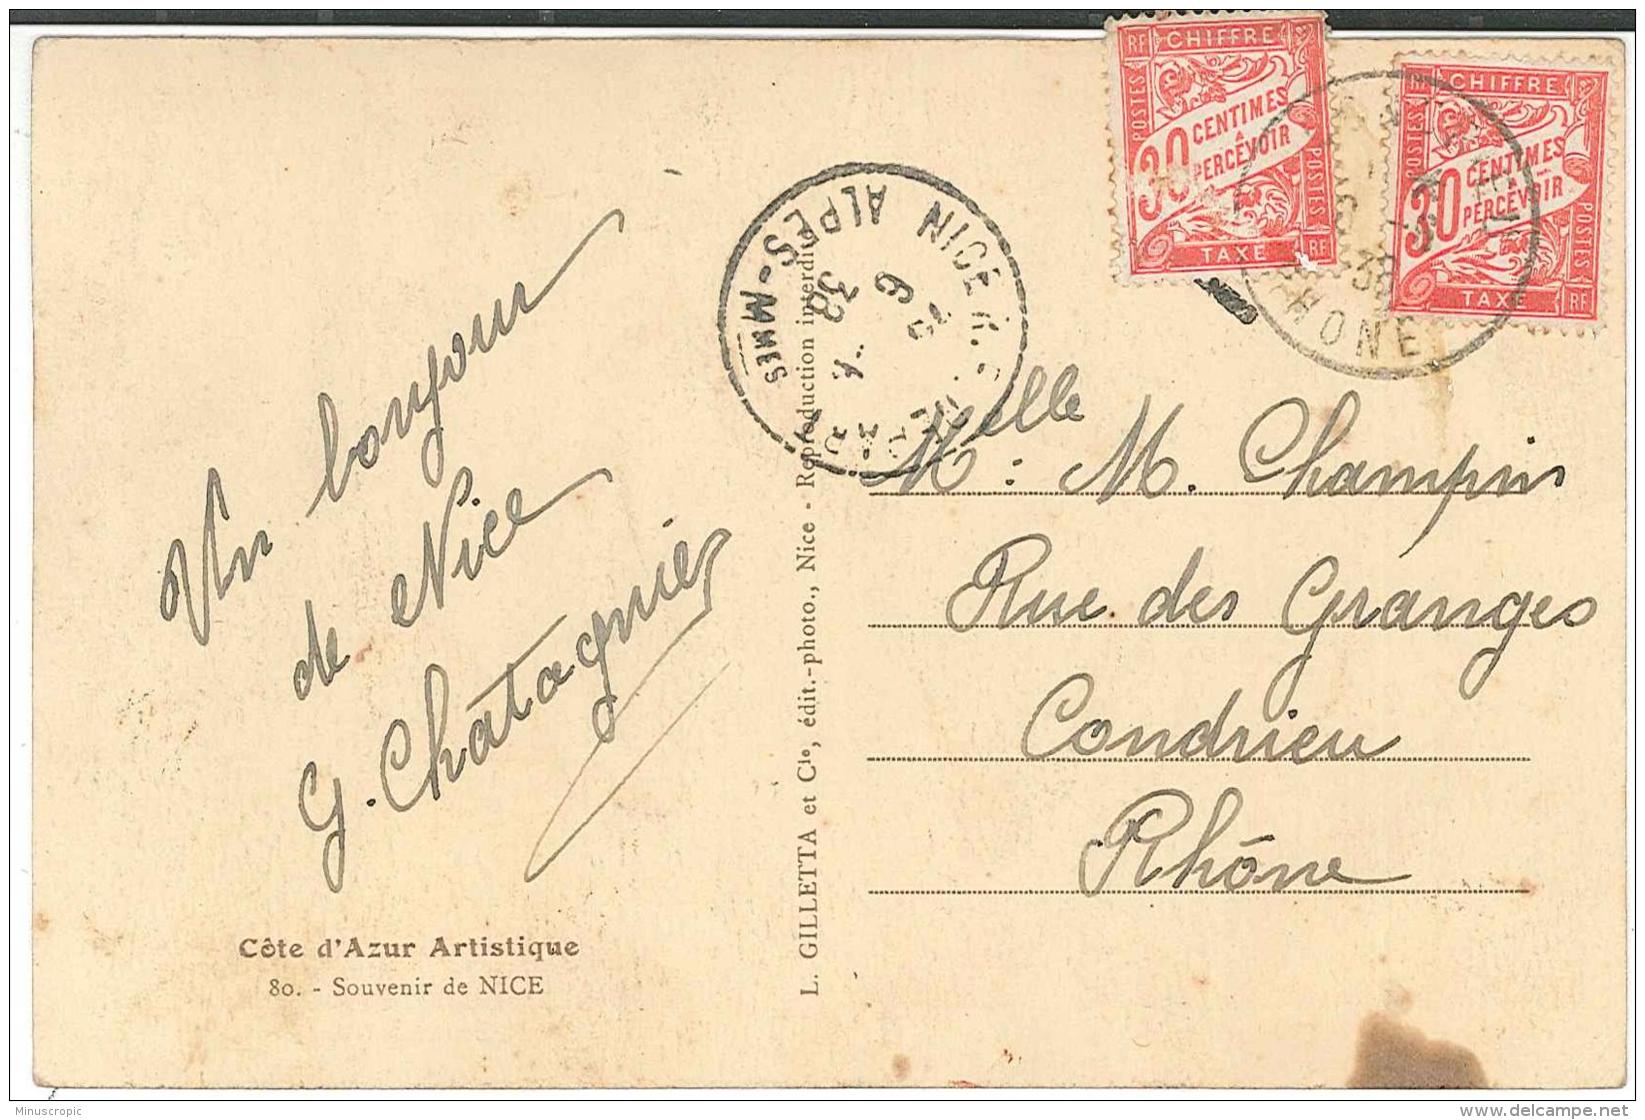 Un bonjour
de Nice
G. Chatagnier
Côte d'Azur Artistique
80. - Souvenir de NICE
L. GILLETTA et Cie, édit.-photo., Nice - Reproduction interdite
NICE R.
ALPES-MMES
38
RF CHIFFRE
POSTES
30 CENTIMES
A
PERCEVOIR
POSTES
TAXE RF
RF CHIFFRE
POSTES
30 CENTIMES
A
PERCEVOIR
POSTES
TAXE RF
RHONE
38
Melle : M. Champin
Rue des Granges
Condrieu
Rhône
Minuscropic
www.delcampe.net